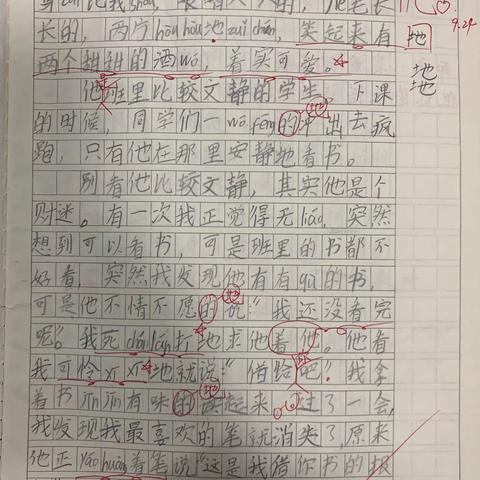 长的，两片hòu hòu地zuǐ chún，笑起来有
两个甜甜的酒wō，着实可爱。
他班里比较文静的学生。下课
的时候，同学们一wō fēng的冲出去疯
跑，只有他在那里安静地看书。
别看他比较文静，其实他是个
财迷。有一次我正觉得无liáo，突然
想到可以看书，可是班里的书都不
好看，突然我发现他有有qù的书，
可是他不情不愿的说：“我还没看完
呢”。我死chán làn打地求他着他。他看
我可怜xī xī地就说：“借给吧！我拿
着书jīn jīn有味的读起来。过了一会，
我发现我最喜欢的笔就消失了，原来
他正yáo huàng着笔说“这是我借你书的报
地
地
地
9.24